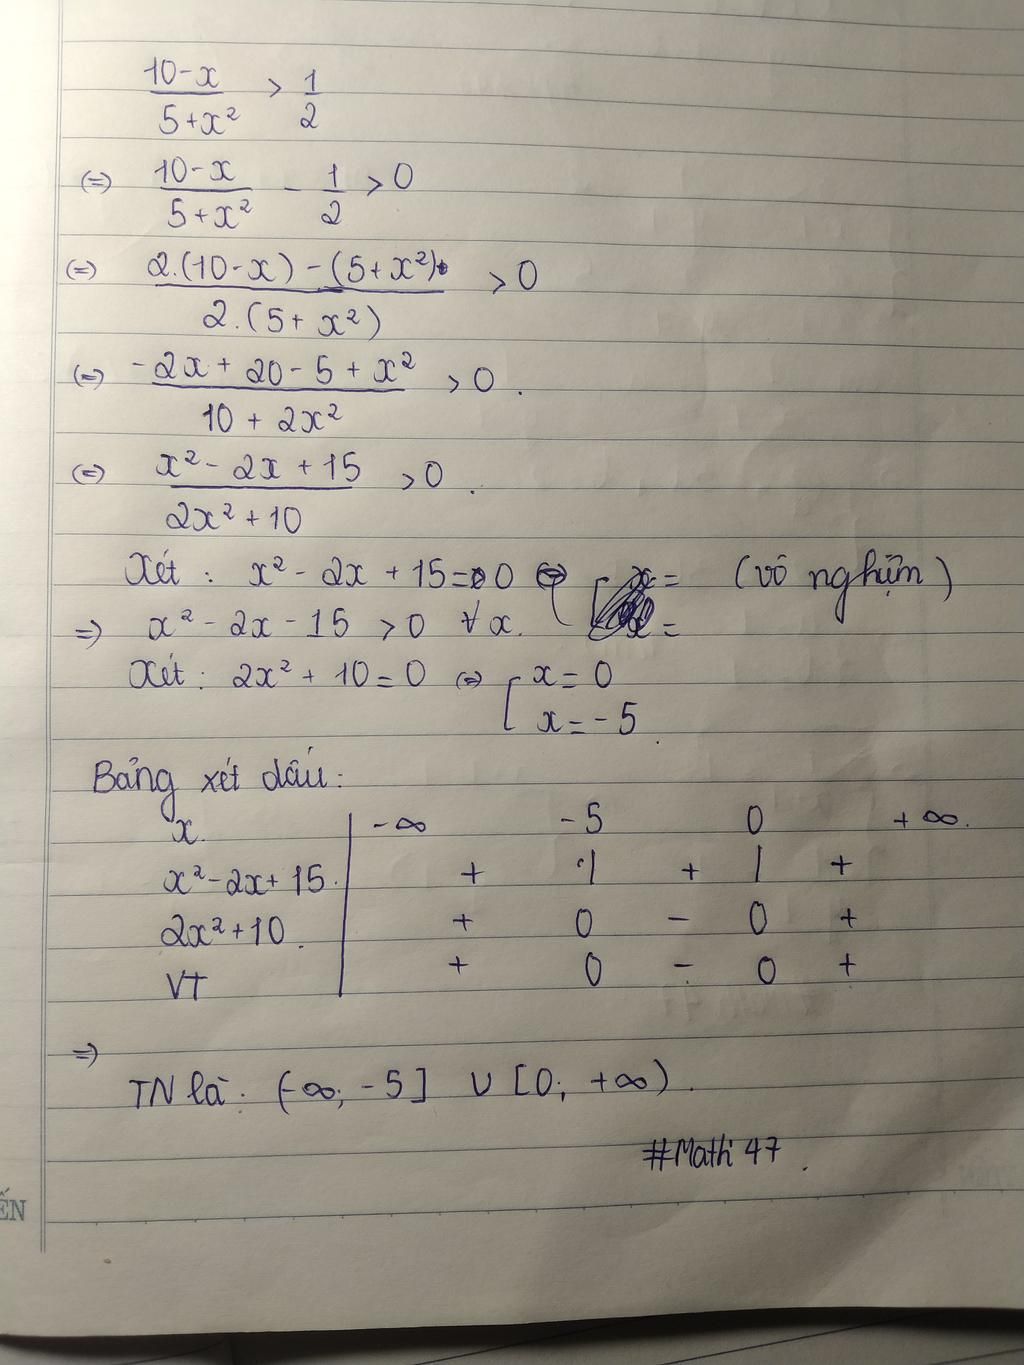 10-x / 5+x² > 1/2
(=) 10-x / 5+x² - 1/2 > 0
(=) 2.(10-x) - (5+x²) / 2.(5+x²) > 0
(=) -2x + 20 - 5 + x² / 10 + 2x² > 0.
(=) x² - 2x + 15 / 2x² + 10 > 0.
Xét: x² - 2x + 15 = 0 (=) [ x = (vô nghiệm)
=) x² - 2x - 15 > 0 ∀x. x =
Xét: 2x² + 10 = 0 (=) [ x = 0
x = -5.
Bảng xét dấu:
x. | -∞ -5 0 +∞.
x² - 2x + 15. | + | + | +
2x² + 10. | + 0 - 0 +
VT | + 0 - 0 +
=)
TN là: (-∞; -5] ∪ [0; +∞).
#Math 47.
ẾN